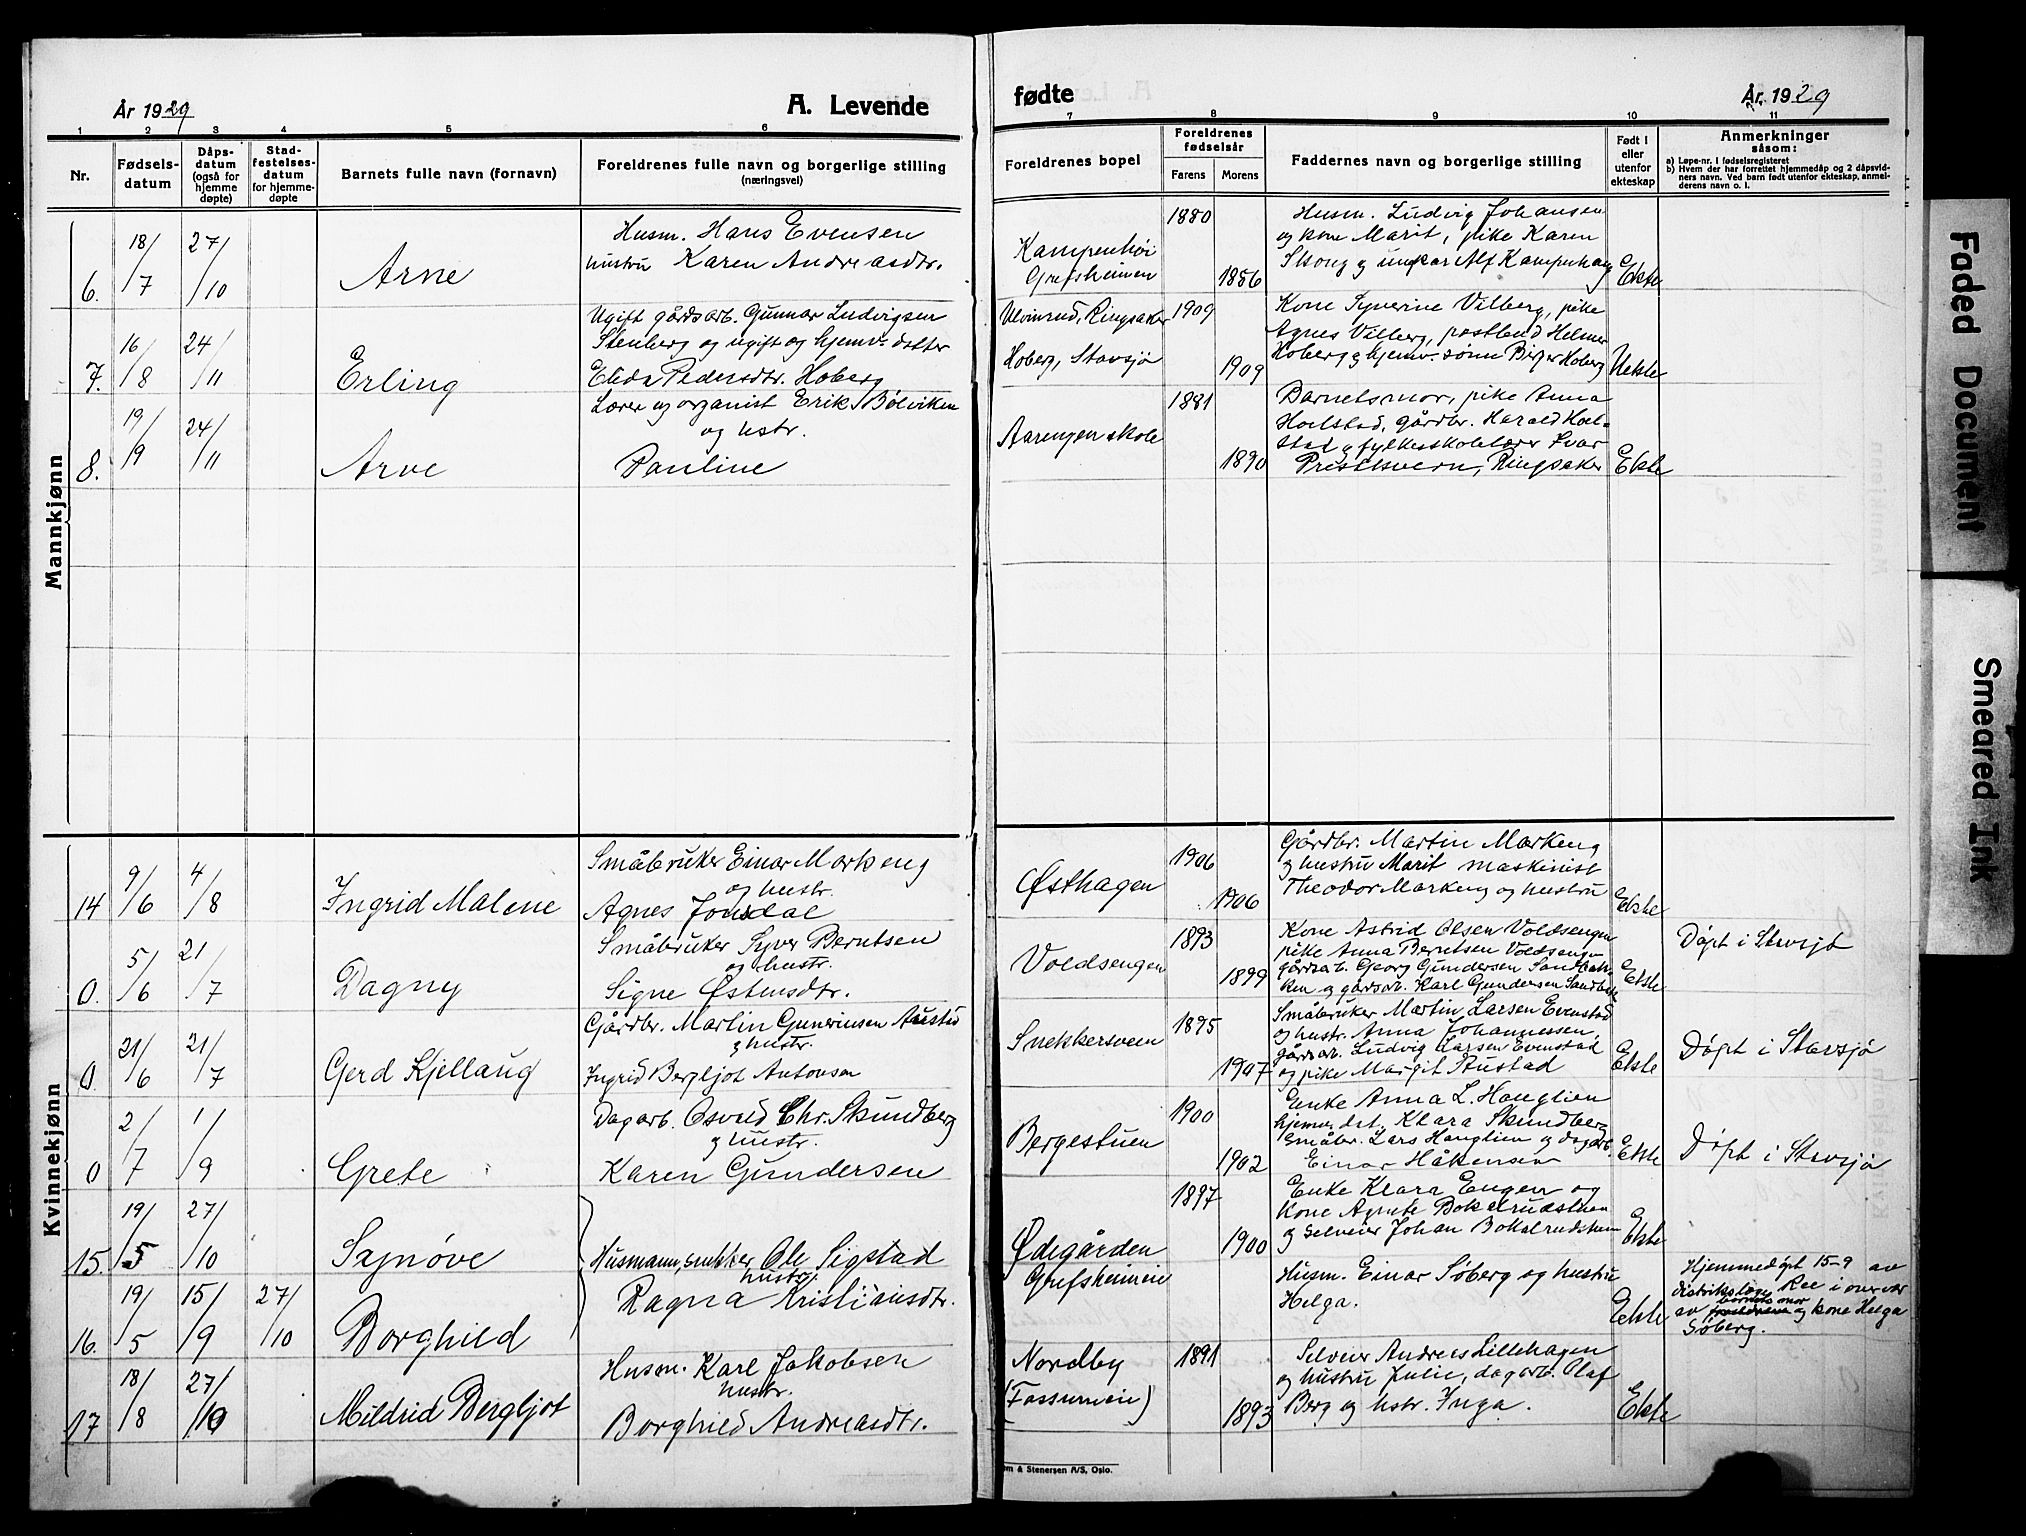 År 1929
A. Levende
fødte
År 1929
1 2 3 4 5 6 7 8 9 10 11
Nr.
Fødsels-
datum
Dåps-
datum
(også for
hjemme
døpte)
Stad-
festelses-
datum
for hjemme-
døpte
Barnets fulle navn (fornavn)
Foreldrenes fulle navn og borgerlige stilling
(næringsvei)
Foreldrenes bopel
Foreldrenes
fødselsår
Farens
Morens
Faddernes navn og borgerlige stilling
Født i
eller
utenfor
ekteskap
Anmerkninger
såsom:
a) Løpe-nr. i fødselsregisteret
b) Hvem der har forrettet hjemmedåp og 2 dåpsvid-
ners navn. Ved barn født utenfor ekteskap, anmel-
derens navn o. l.
Mannkjønn
6. 18/7 27/10 Arne
Husm. Hans Evensen
hustru Karen Andreasdtr.
Kampenhøi
Grefsheimen
1880
1886
Husm. Ludvig Johansen
og kone Marit, pike Karen
Skoug og unkar Alf Kampenhaug
Ekte
7. 16/8 24/11 Erling
Ugift gårdsarb. Gunnar Ludvigsen
Stenberg og ugift og hjemv. datter
Elida Pedersdtr. Hoberg
Ulvinrud, Ringsaker
Hoberg, Stavsjø
1909
1909
Kone Syverine Vilberg, pike
Agnes Vilberg, postbud Helmer
Hoberg og hjemv. sønn Birger Hoberg
Uekte
8. 19/9 24/11 Arve
Lærer og organist Erik Bølviken
og hstr.
Pauline
Aarengen skole
1881
1890
Barnets mor, pike Anna
Hoelstad, gårdbr. Harald Hoel-
stad og fylkesskolelærer Ivar
Prestesvern, Ringsaker
Ekte
Kvinnekjønn
14 9/6 4/8 Ingrid Malene
Småbruker Einar Markeng
og hustr.
Agnes Jonsdal
Østhagen
1906
1906
Gårdbr. Martin Markeng
og hustru Marit maskinist
Theodor Markeng og hustru
Ekte
0. 5/6 21/7 Dagny
Småbruker Syver Berntsen
og hustr.
Signe Østensdtr.
Voldsengen
1893
1899
Kone Astrid Olsen Voldsengen
pike Anna Berntsen Voldsengen
gårdsarb. Georg Gundersen Sandbak-
ken og gårdsarb. Karl Gundersen Sandbakk
Ekte
Døpt i Stavsjø
0. 21/6 21/7 Gerd Kjellaug
Gårdbr. Martin Gunerinsen
og hustr.
Ingrid Bergljot Antonsen
Snekkersveen
1895
1907
Småbruker Martin Larsen Evenstad
og hustr. Anna Johannessen,
gårdsarb. Ludvig Larsen Evenstad
og pike Margit Rustad
Ekte
Døpt i Stavsjø
0 2/7 1/9 Grete
Dagarb. Osvald Chr. Skundberg
og hustr.
Karen Gundersen
Bergestuen
1900
1902
Enke Anna L. Hauglien
hjemv. dat. Klara Skundberg
småbr. Lars Hauglien og dagarb.
Einar Håkensen
Ekte
Døpt i Stavsjø
15. 19/5 27/10 Synnøve
Husmann, snekker Ole Sigstad
hustr.
Ragna Kristiansdtr.
Ødegården
Grefsheimeie
1897
1900
Enke Klara Engen og
Kone Agnete Bokalrudstuen
og selveier Johan Bokalrudstuen
Ekte
16. 19/5 15/9 27/10 Borghild
Husm. Einar Søberg og hustru
Helga.
Ekte
Hjemmedøpt 15-9 av
distriktslæge Ree i overvær
barnets mor
av foreldrene og kone Helga
Søberg.
17 18/8 27/10 Mildrid Bergljot
Husm. Karl Jakobsen
hustr.
Borghild Andreasdtr.
Nordby
(Fossumeie)
1891
1893
Selveier Andreas Lillehagen
og hustru Julie, dagarb. Olaf
Berg og hstr. Inga.
Ekte
& Stenersen A/S, Oslo.
Faded Document
Smeared Ink